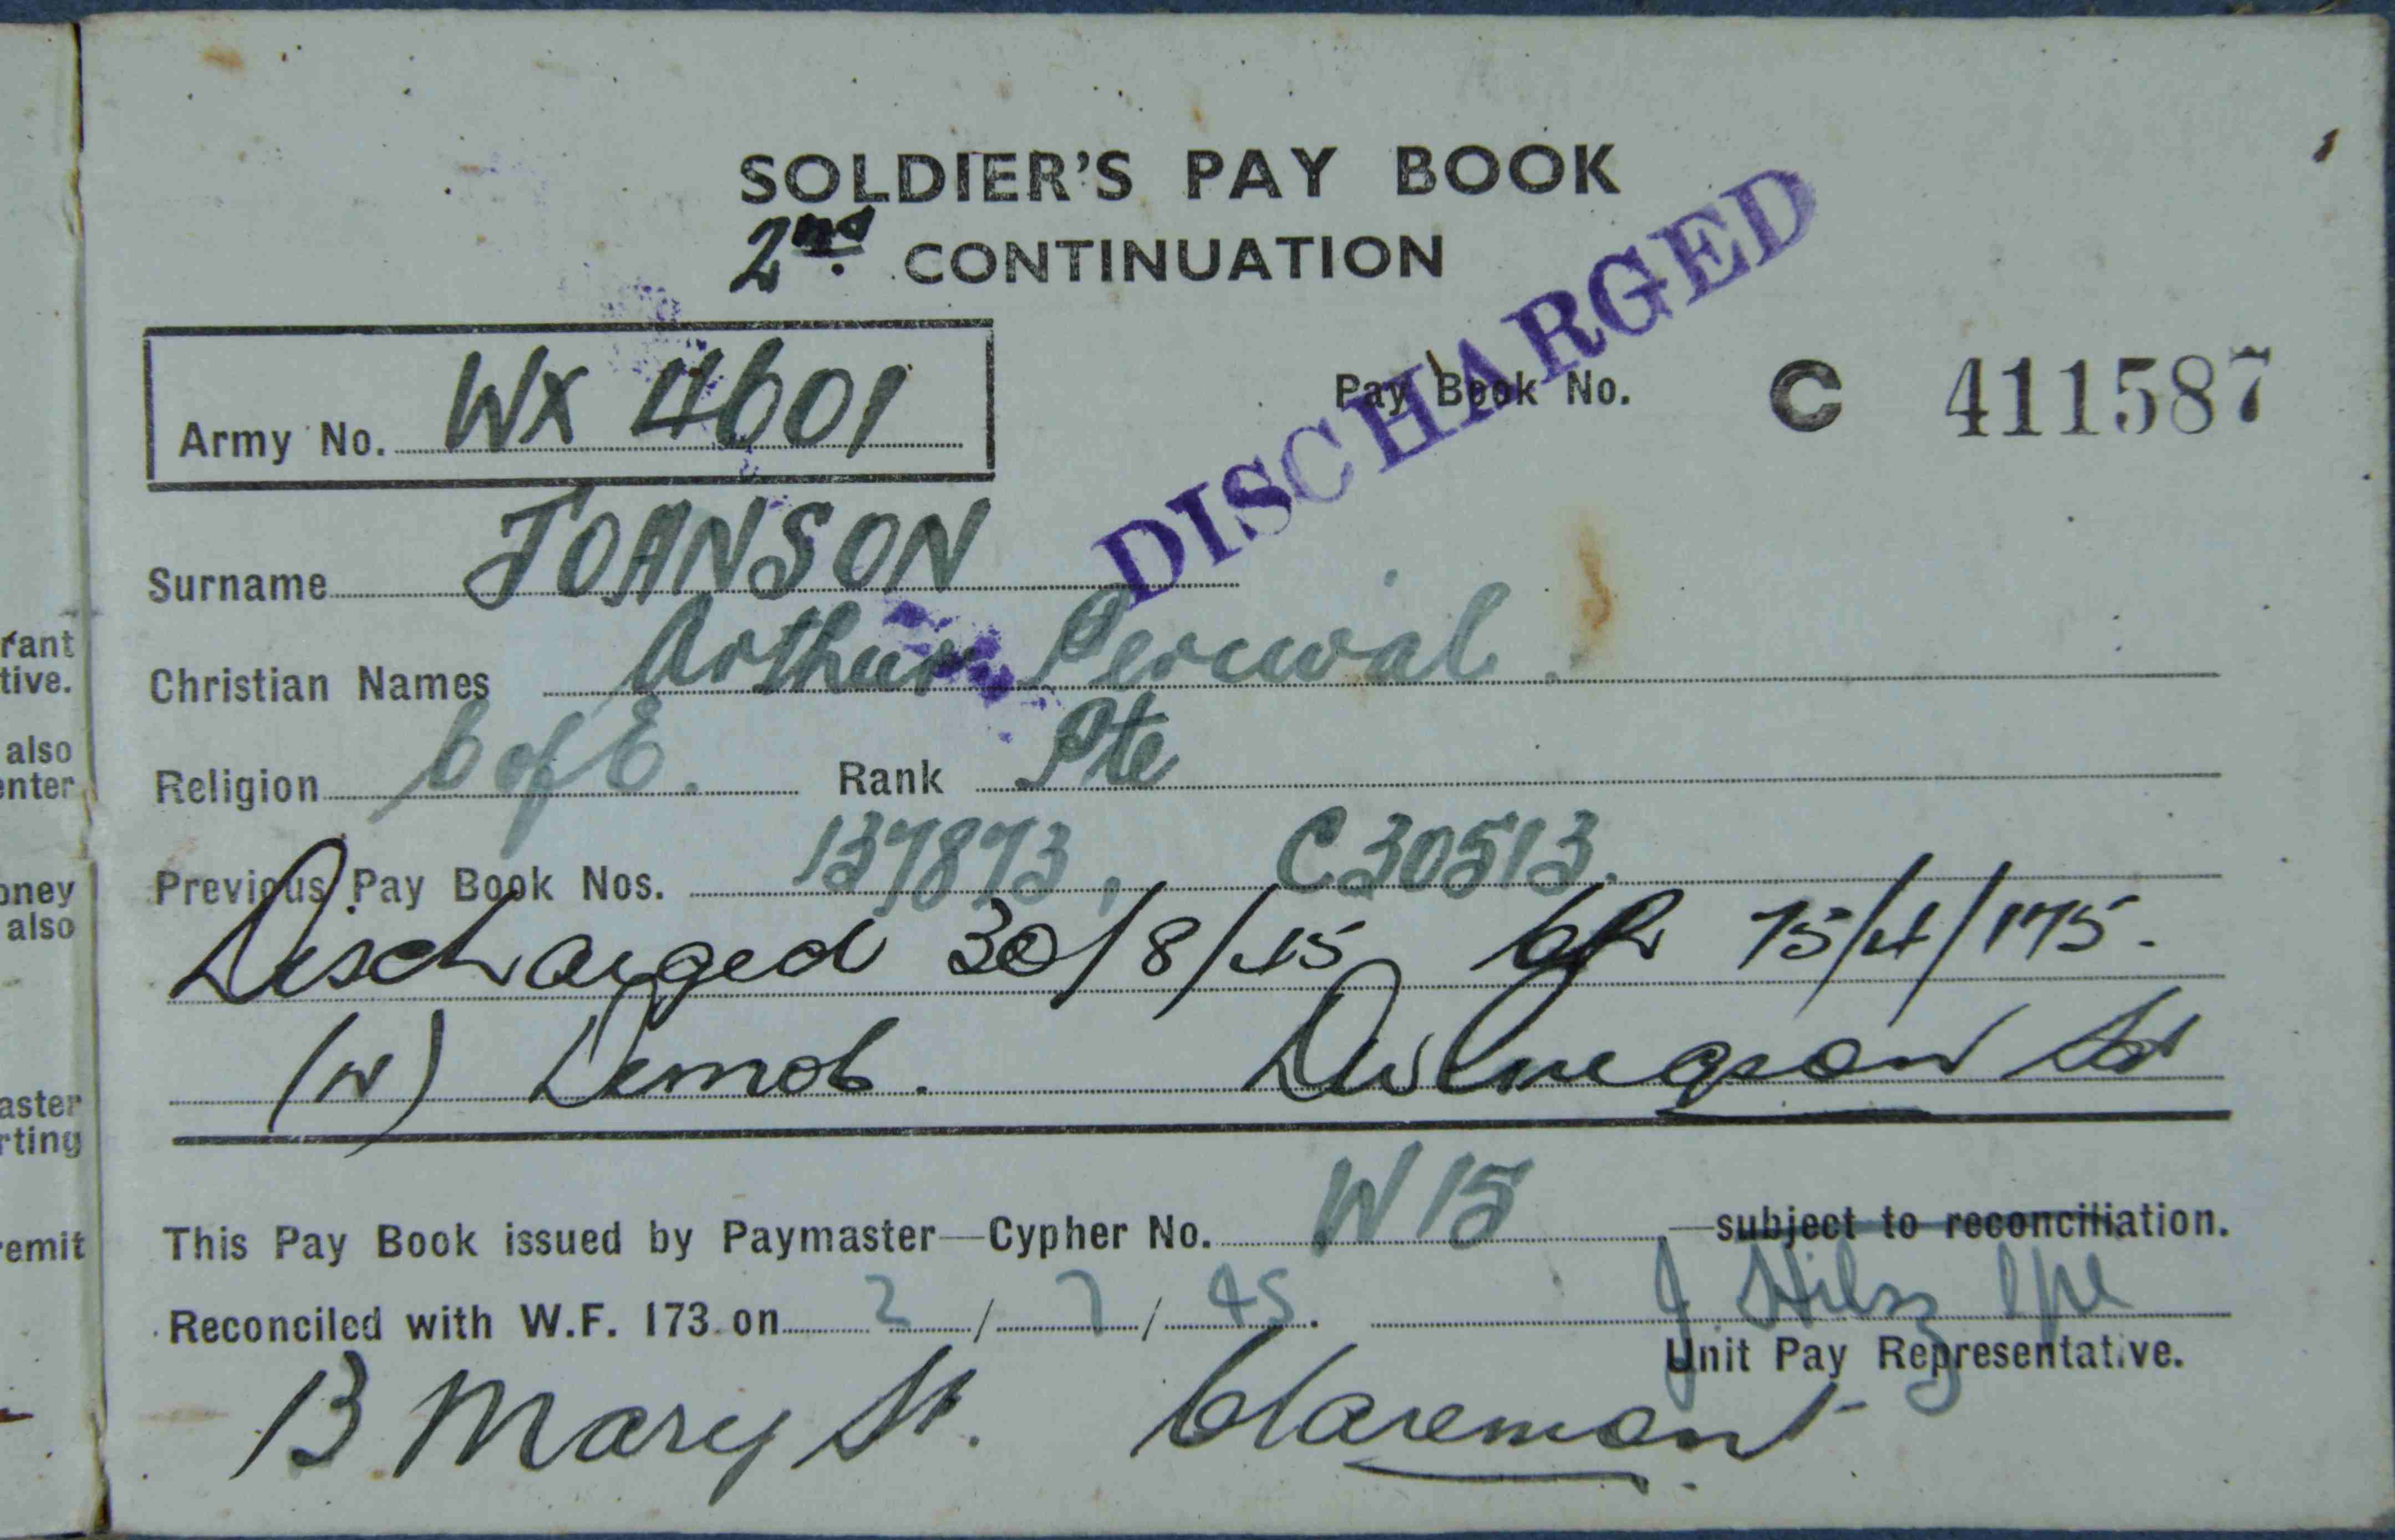 SOLDIER'S PAY BOOK
2nd CONTINUATION
DISCHARGED
Army No. WX 4601
Pay Book No. C 411587
Surname JOHNSON
Christian Names Arthur Percival.
Religion C of E. Rank Pte
Previous Pay Book Nos. 137873, C30513.
Discharged 30/8/45 75/4/175.
(N) Demob.
This Pay Book issued by Paymaster—Cypher No. W 15 —subject to reconciliation.
Reconciled with W.F. 173 on 2 / 7 / 45.
Unit Pay Representative.
13 Mary St. Claremont
rant
tive.
also
enter
oney
also
aster
rting
remit